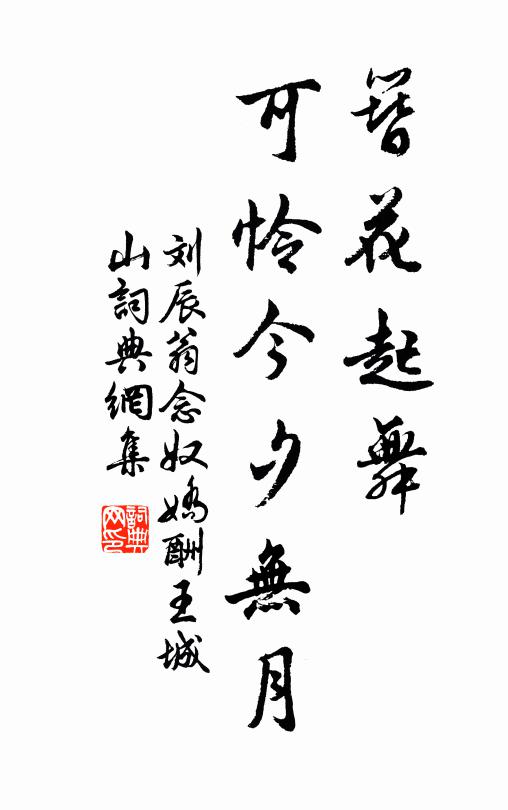 簪花起舞
可怜今夕無月
刘辰翁念奴嬌酬王城
山詞典網集
詞典网印